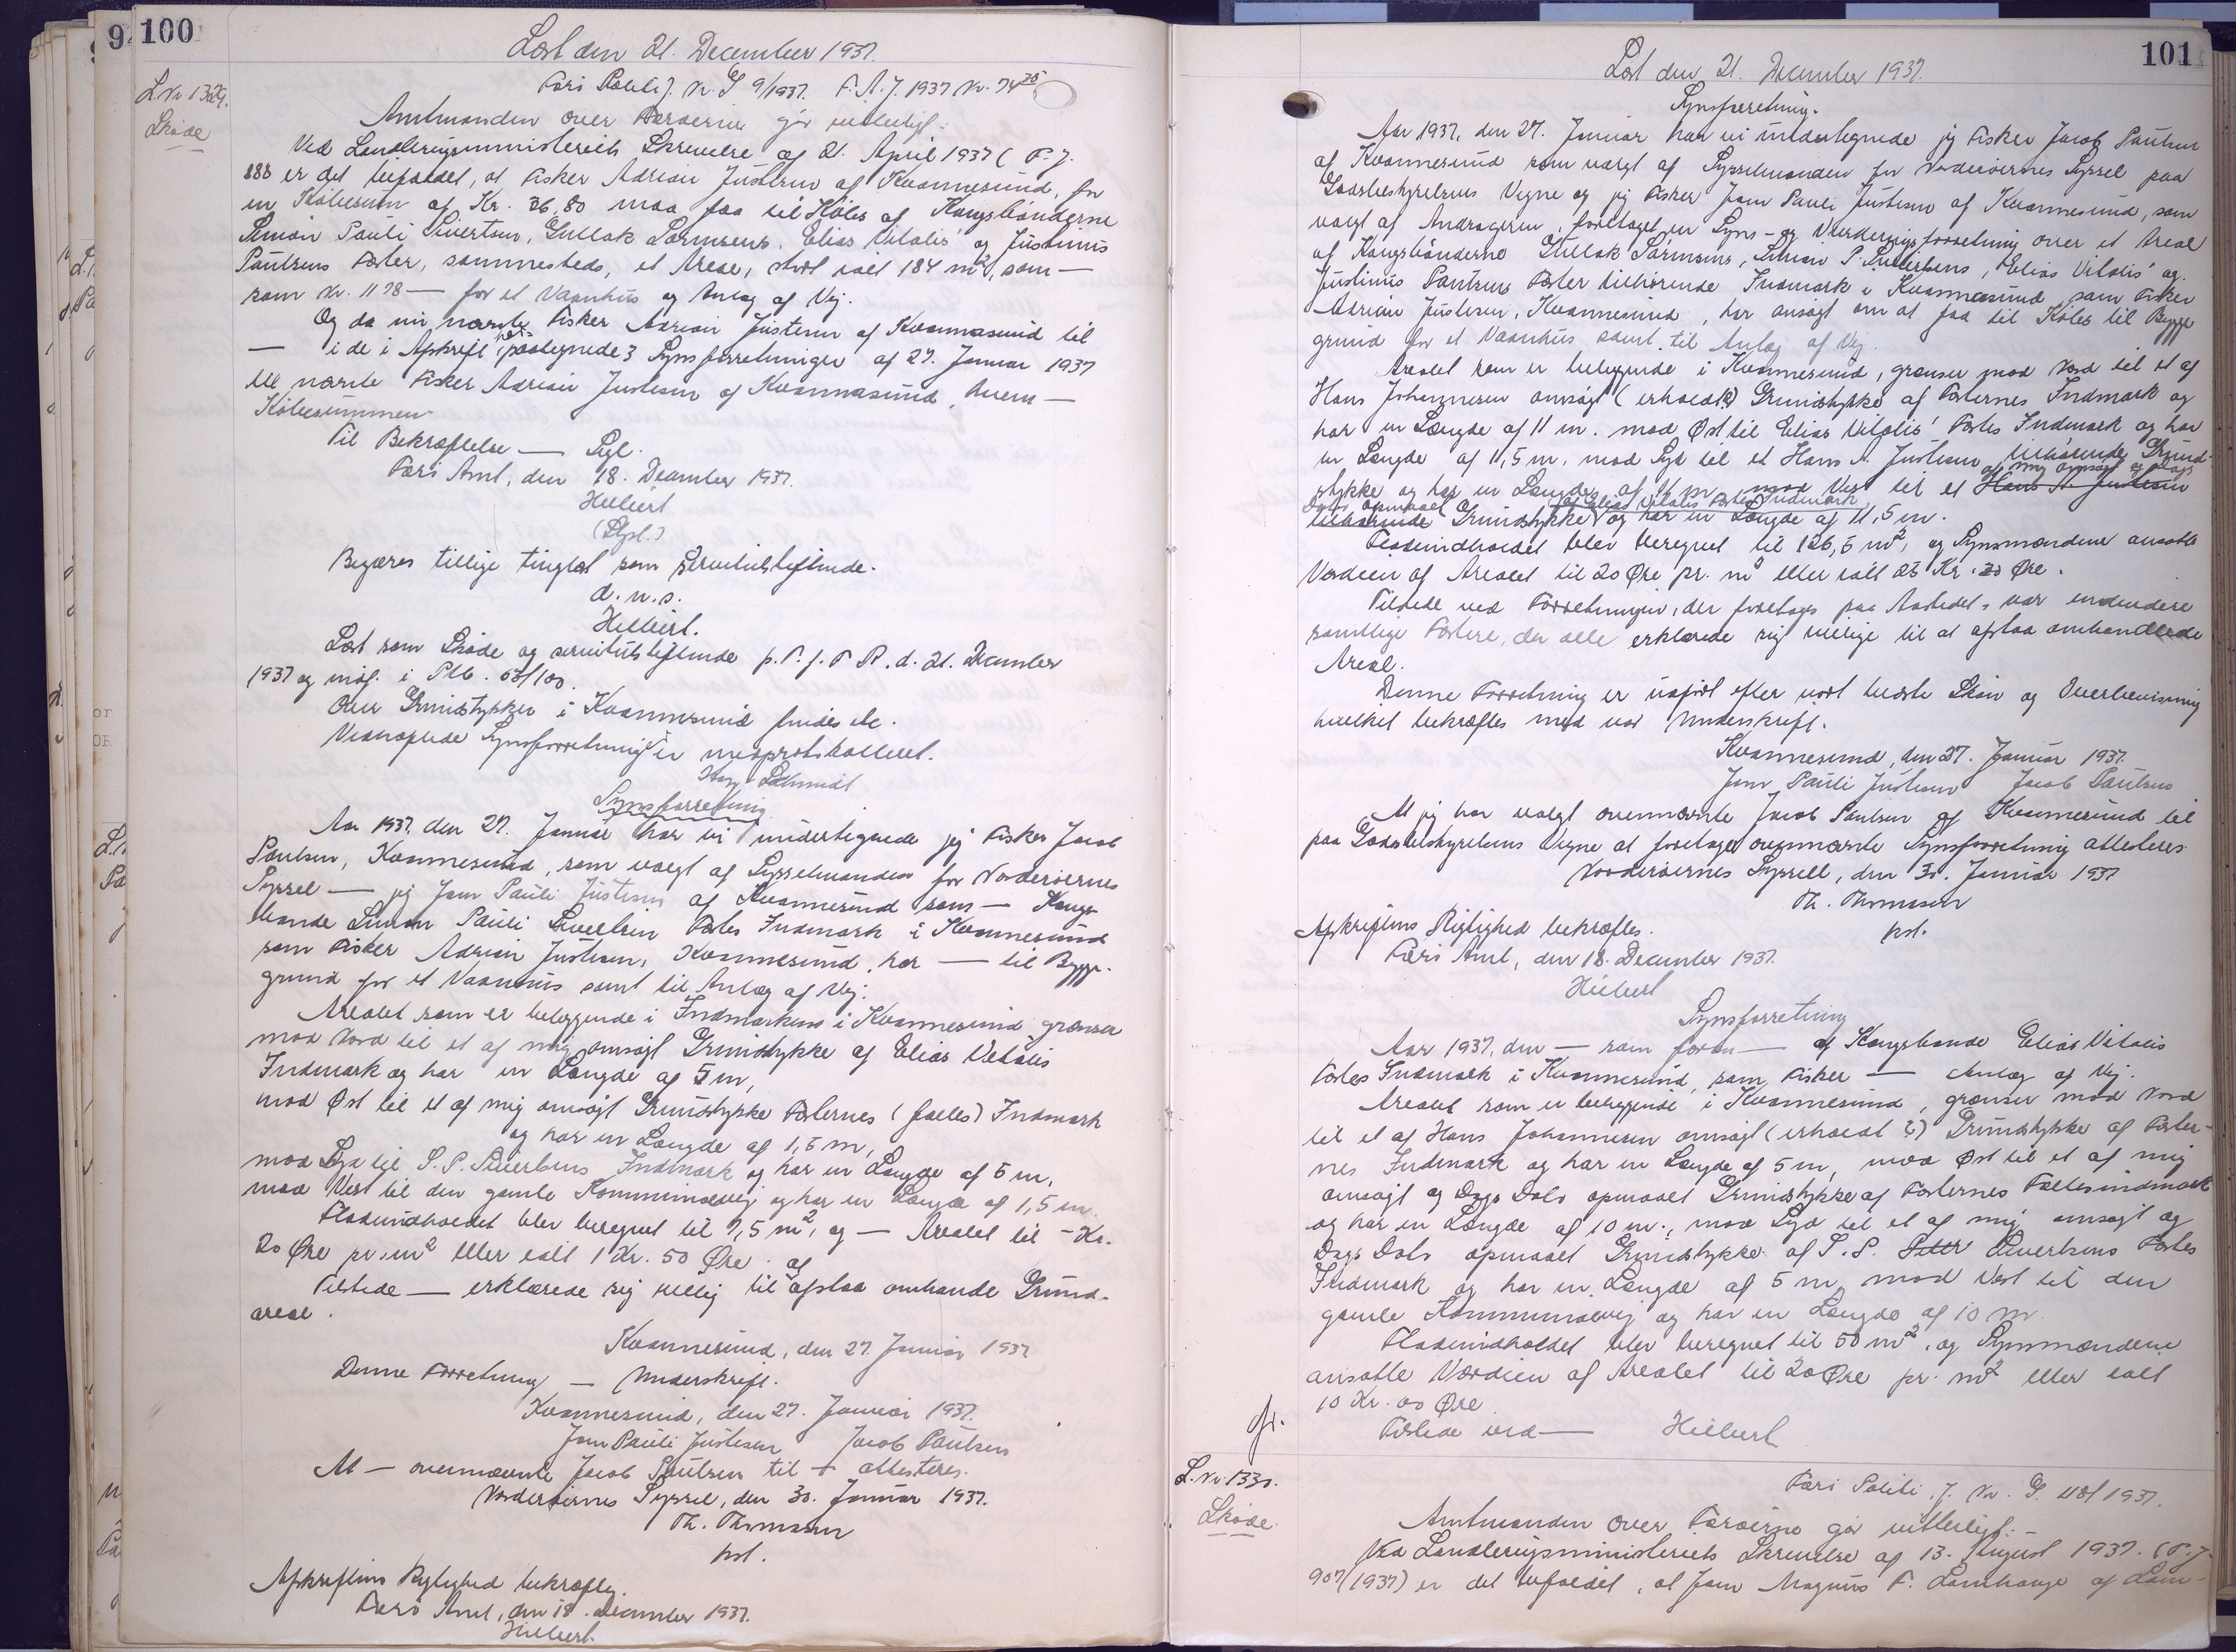 100
Læst den 21. December 1937.
L.Nr 1329.
Skøde
Færø Politi J. Nr. G 9/1937. F.A.J. 1937 Nr. 74
Amtmanden over Færøerne gør vitterligt:
Ved Landbrugsministeriets Skrivelse af 21. April 1937 (P.J.
888 er det bifaldet, at Fisker Adrian Justesen af Kvannesund, for
en Købesum af Kr. 36,80 maa faa til Købs af Kongsbønderne
Simon Pauli Sivertsen, Gullak Sørensens, Elias Vitalis' og Justinus
Poulsens Fæster, sammesteds, et Areal, stort ialt 184 m², som —
som Nr. 1178 — for et Vaanhus og Anlæg af Vej.
Og da nu nævnte Fisker Adrian Justesen af Kvannasund til
— i de i Afskrift paategnede 3 Synsforretninger af 27. Januar 1937
til nævnte Fisker Adrian Justesen af Kvannasund, hvem —
Købesummen
Til Bekræftelse — Sgl.
Færø Amt, den 18. December 1937.
Hilbert
(Sgl.)
Begæres tillige tinglæst som servitutstiftende.
d. u. s.
Hilbert.
Læst som Skøde og servitutstiftende p. T. f. F R. d. 21. December
1937 og indf. i Ptb. 03/100.
Over Grundstykker i Kvannesund findes etc.
Vedhæftede Synsforretninger er medprotokolleret.
Schmidt
Synsforretning
Aar 1937, den 27. Januar har vi undertegnede jeg Fisker Jacob
Poulsen, Kvannesund, som valgt af Sysselmanden for Norderøernes
Syssel — jeg Joen Pauli Justesen af Kvannesund som — Kongs-
bonde Simon Pauli Sivertsen Fæstes Indmark i Kvannesund
som Fisker Adrian Justesen, Kvannesund, har — til Bygge-
grund for et Vaanhus samt til Anlæg af Vej.
Arealet som er beliggende i Indmarken i Kvannesund grænser
mod Nord til et af mig ansøgt Grundstykke af Elias Vitalis
Indmark og har en Længde af 5 m,
mod Øst til et af mig ansøgt Grundstykke Fæsternes (fælles) Indmark
og har en Længde af 1,5 m,
mod Syd til S. P. Sivertsens Indmark og har en Længde af 5 m,
mod Vest til den gamle Kommunevej og har en Længde af 1,5 m.
Fladeindholdet blev beregnet til 7,5 m², og — Arealet til - Kr.
20 Øre pr. m² eller ialt 1 Kr. 50 Øre.
Tilstede — erklærede sig villig til at afstaa omhandle Grund-
areal.
Kvannesund, den 27. Januar 1937
Denne Forretning — Underskrift.
Kvannesund, den 27. Januar 1937.
Joen Pauli Justesen Jacob Poulsen
At — ovennævnte Jacob Poulsen til — attesteres.
Norderøernes Syssel, den 30. Januar 1937.
Th. Thomasen
kst.
Afskriftens Rigtighed bekræftes.
Færø Amt, den 18. December 1937.
Hilbert.
101
Læst den 21. December 1937.
Synsforretning.
Aar 1937, den 27. Januar har vi undertegnede jeg Fisker Jacob Poulsen
af Kvannesund som valgt af Sysselmanden for Norderøernes Syssel paa
Godsbestyrelsens Vegne og jeg Fisker Joen Pauli Justesen af Kvannesund, som
valgt af Andrageren, foretaget en Syns- og Vurderingsforretning over et Areal
af Kongsbønderne Gullak Sørensens, Simon P. Sivertsens, Elias Vitalis' og
Justinus Poulsens Fæster tilhørende Indmark i Kvannesund som Fisker
Adrian Justesen, Kvannesund, har ansøgt om at faa til Købs til Bygge-
grund for et Vaanhus samt til Anlæg af Vej.
Arealet som er beliggende i Kvannesund, grænser mod Nord til et af
Hans Johannesen ansøgt (erholdt?) Grundstykke af Fæsternes Indmark og
har en Længde af 11 m. mod Øst til Elias Vitalis' Fæstes Indmark og har
en Længde af 11,5 m, mod Syd til et Hans A. Justesen tilhørende Grund-
stykke og har en Længde af 11 m, mod Vest til et Hans A. Justesen af mig ansøgt og Dags
Dato opmaalt tilhørende Grundstykke af Elias Vitalis Fæstes Indmark og har en Længde af 11,5 m.
Fladeindholdet blev beregnet til 126,5 m², og Synsmændene ansatte
Værdien af Arealet til 20 Øre pr. m² eller ialt 25 Kr. 30 Øre.
Tilstede ved Forretningen, der foretages paa Aastedet, var endvidere
samtlige Fæstere, der alle erklærede sig villige til at afstaa omhandlede
Areal.
Denne Forretning er udført efter vort bedste Skøn og Overbevisning
hvilket bekræftes med vor Underskrift.
Kvannesund, den 27. Januar 1937.
Joen Pauli Justesen Jacob Poulsen
At jeg har valgt ovennævnte Jacob Poulsen af Kvannesund til
paa Godsbestyrelsens Vegne at foretage ovennævnte Synsforretning attesteres
Norderøernes Syssel, den 30. Januar 1937
Th. Thomasen
kst.
Afskriftens Rigtighed bekræftes.
Færø Amt, den 18. December 1937.
Hilbert
Synsforretning
Aar 1937, den — som foran — af Kongsbonde Elias Vitalis
Fæstes Indmark i Kvannesund, som Fisker — Anlæg af Vej.
Arealet som er beliggende i Kvannesund, grænser mod Nord
til et af Hans Johannesen ansøgt (erholdt?) Grundstykke af Fæster-
nes Indmark og har en Længde af 5 m, mod Øst til et af mig
ansøgt og Dags Dato opmaalt Grundstykke af Fæsternes Fællesindmark
og har en Længde af 10 m., mod Syd til et af mig ansøgt og
Dags Dato opmaalt Grundstykke af S. P. Sivertsens Fæstes
Indmark og har en Længde af 5 m, mod Vest til den
gamle Kommunevej og har en Længde af 10 m.
Fladeindholdet blev beregnet til 50 m², og Synsmændene
ansatte Værdien af Arealet til 20 Øre pr. m² eller ialt
10 Kr. 00 Øre
Tilstede ved — Hilbert
L.Nr. 1330.
Skøde.
Færø Politi J. Nr. G. 118/1937.
Amtmanden over Færøerne gør vitterligt:
Ved Landbrugsministeriets Skrivelse af 13. August 1937. (P.J.
907/1937) er det bifaldet, at Joen Magnus F. Lamhauge af Lam-